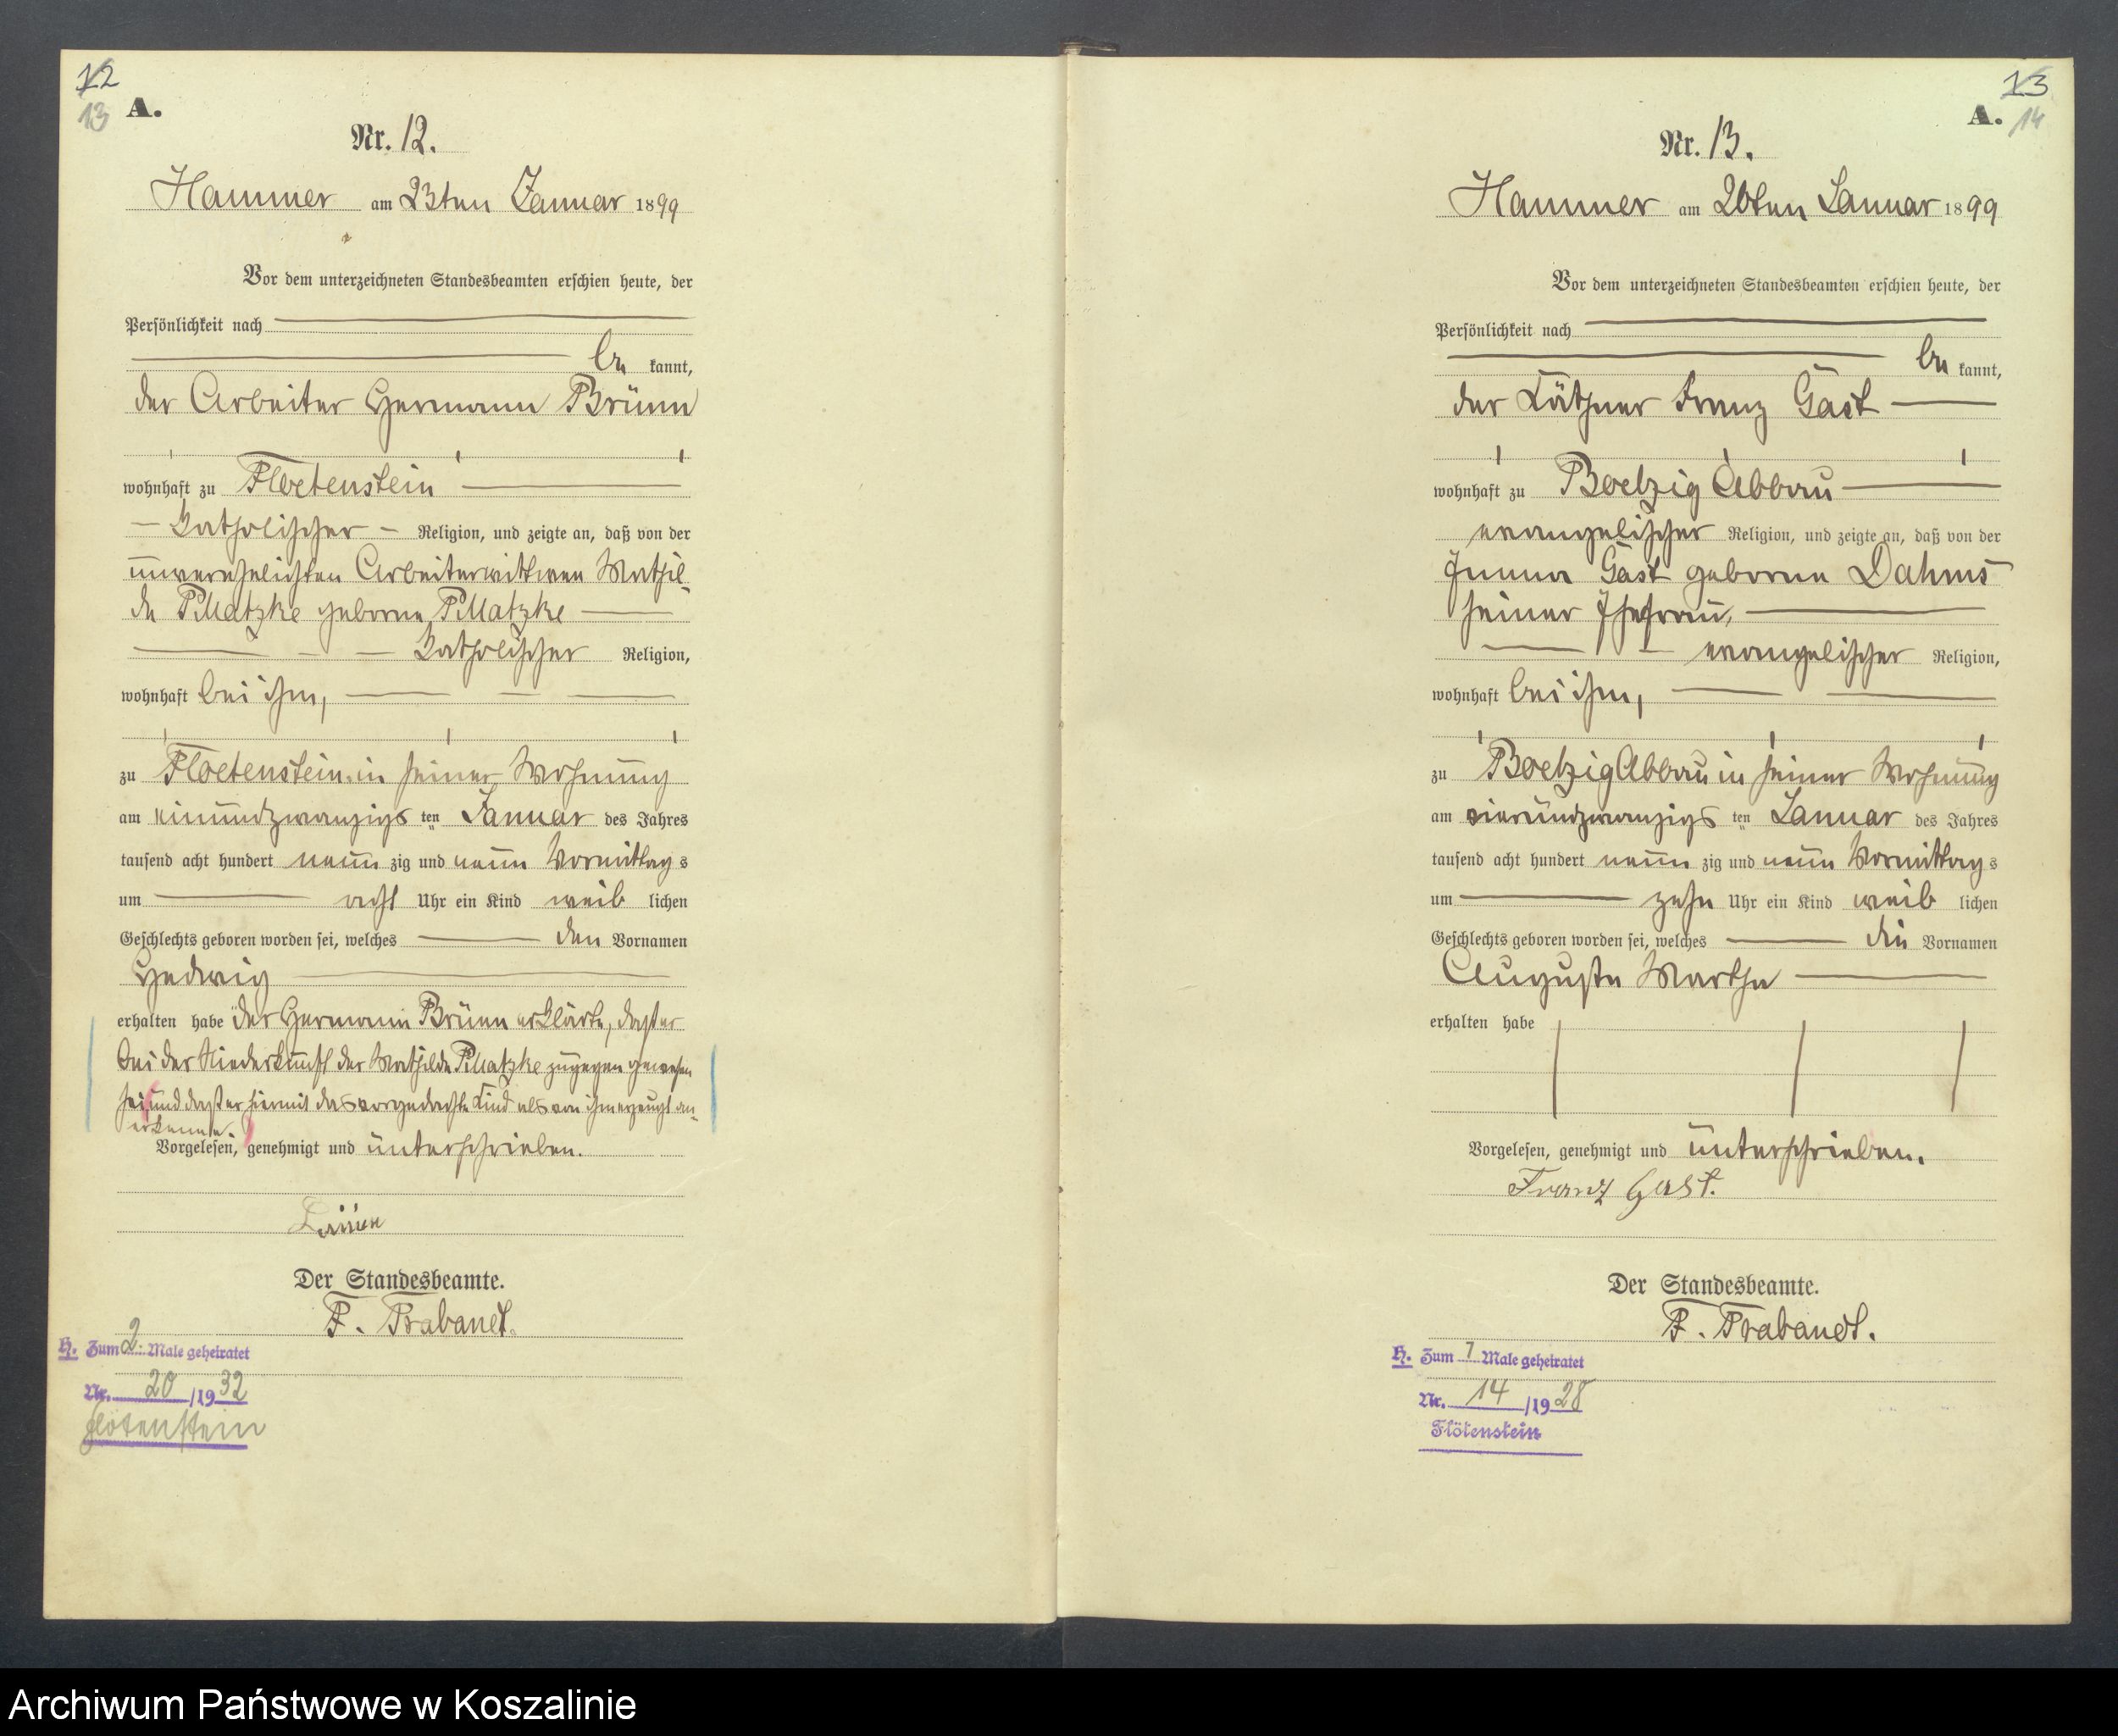 12
13
A.
Nr. 12.
Hammer am 23ten Januar 1899
Vor dem unterzeichneten Standesbeamten erschien heute, der
Persönlichkeit nach
be kannt,
der Arbeiter Hermann Brünn
wohnhaft zu Floetenstein
katholischer Religion, und zeigte an, daß von der
unverehelichten Arbeiterwittwen Mathil-
de Pillatzke geborne Pillatzke
katholischer Religion,
wohnhaft bei ihm,
zu Floetenstein in seiner Wohnung
am einundzwanzigs ten Januar des Jahres
tausend acht hundert neun zig und neun Vormittag s
um acht Uhr ein Kind weib lichen
Geschlechts geboren worden sei, welches den Vornamen
Hedwig
erhalten habe der Hermann Brünn erklärte, daß er
bei der Niederkunft der Mathilde Pillatzke zugegen gewesen
sei und daß er hiermit das vorgedachte Kind als von ihm erzeugt an-
erkenne.
Vorgelesen, genehmigt und unterschrieben.
Der Standesbeamte.
F. Trabandt.
H. Zum 2. Male geheiratet
Nr. 20 /19 32
Flötenstein
13
14
A.
Nr. 13.
Hammer am 26ten Januar 1899
Vor dem unterzeichneten Standesbeamten erschien heute, der
Persönlichkeit nach
be kannt,
der Käthner Franz Gast
wohnhaft zu Boelzig Abbau
evangelischer Religion, und zeigte an, daß von der
Emma Gast geborne Dahms
seiner Ehefrau,
evangelischer Religion,
wohnhaft bei ihm,
zu Boelzig Abbau in seiner Wohnung
am vierundzwanzigs ten Januar des Jahres
tausend acht hundert neun zig und neun Vormittag s
um zehn Uhr ein Kind weib lichen
Geschlechts geboren worden sei, welches die Vornamen
Auguste Martha
erhalten habe
Vorgelesen, genehmigt und unterschrieben.
Franz Gast.
Der Standesbeamte.
F. Trabandt.
H. Zum 1 Male geheiratet
Nr. 14 /19 28
Flötenstein
Archiwum Państwowe w Koszalinie